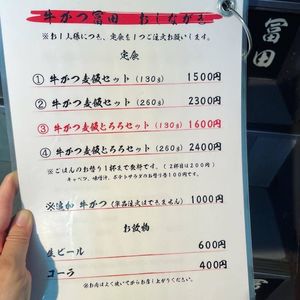 牛かつ冨田 おしながき
※お1人様につき、定食を1つご注文お願いします。
定食
① 牛かつ麦飯セット (130g) 1500円
② 牛かつ麦飯セット (260g) 2300円
③ 牛かつ麦飯とろろセット (130g) 1600円
④ 牛かつ麦飯とろろセット (260g) 2400円
※ごはんのお替り1杯まで無料です。(2杯目は200円)
キャベツ、味噌汁、ポテトサラダのお替り各100円です。
※追加 牛かつ (単品注文はできません) 1000円
お飲物
生ビール 600円
コーラ 400円
※お肉はよく焼いてからお召し上がりください。
冨田